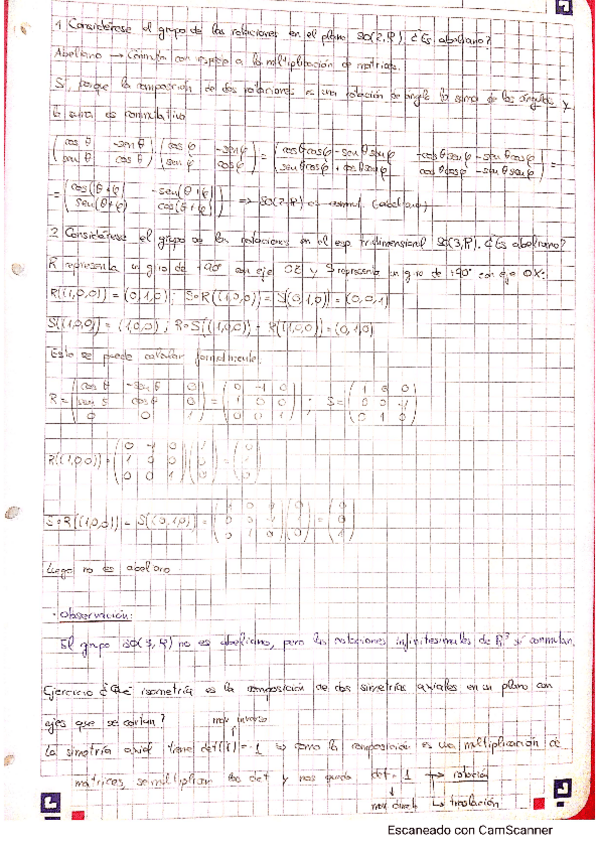 1 Considérese el grupo de las rotaciones en el plano SO(2,R) ¿Es abeliano?
Abeliano → Conmuta con respecto a la multiplicación de matrices.
Sí, porque la composición de dos rotaciones es una rotación de ángulo la suma de los ángulos y
la suma es conmutativa
(cos θ -sen θ / sen θ cos θ) (cos φ -sen φ / sen φ cos φ) = (cosθcosφ-senθsenφ -cosθsenφ-senθcosφ / senθcosφ+cosθsenφ cosθcosφ-senθsenφ) =
= (cos(θ+φ) -sen(θ+φ) / sen(θ+φ) cos(θ+φ)) => SO(2,R) es conmut. (abeliano)
2 Considérese el grupo de las rotaciones en el esp. tridimensional SO(3,R). ¿Es abeliano?
R representa un giro de +90° con eje OZ y S representa un giro de +90° con eje OX:
R((1,0,0)) = (0,1,0); S∘R((1,0,0)) = S(0,1,0) = (0,0,1)
S((1,0,0)) = (1,0,0); R∘S((1,0,0)) = R((1,0,0)) = (0,1,0)
Esto se puede calcular formalmente.
R = (cos θ -sen θ 0 / sen θ cos θ 0 / 0 0 1) = (0 -1 0 / 1 0 0 / 0 0 1); S = (1 0 0 / 0 0 -1 / 0 1 0)
R((1,0,0)) = (0 -1 0 / 1 0 0 / 0 0 1)
S∘R((1,0,0)) = S((0,1,0)) =
Luego no es abeliano
· Observación:
El grupo SO(3,R) no es abeliano, pero las rotaciones infinitesimales de R³ sí conmutan.
Ejercicio ¿Qué isometría es la composición de dos simetrías axiales en un plano con
ejes que se cortan?
mov inverso
La simetría axial tiene det = -1 como la composición es una multiplicación de
matrices, se multiplican los det y nos queda det = 1 → rotación
mov direct ↳ traslación
Escaneado con CamScanner